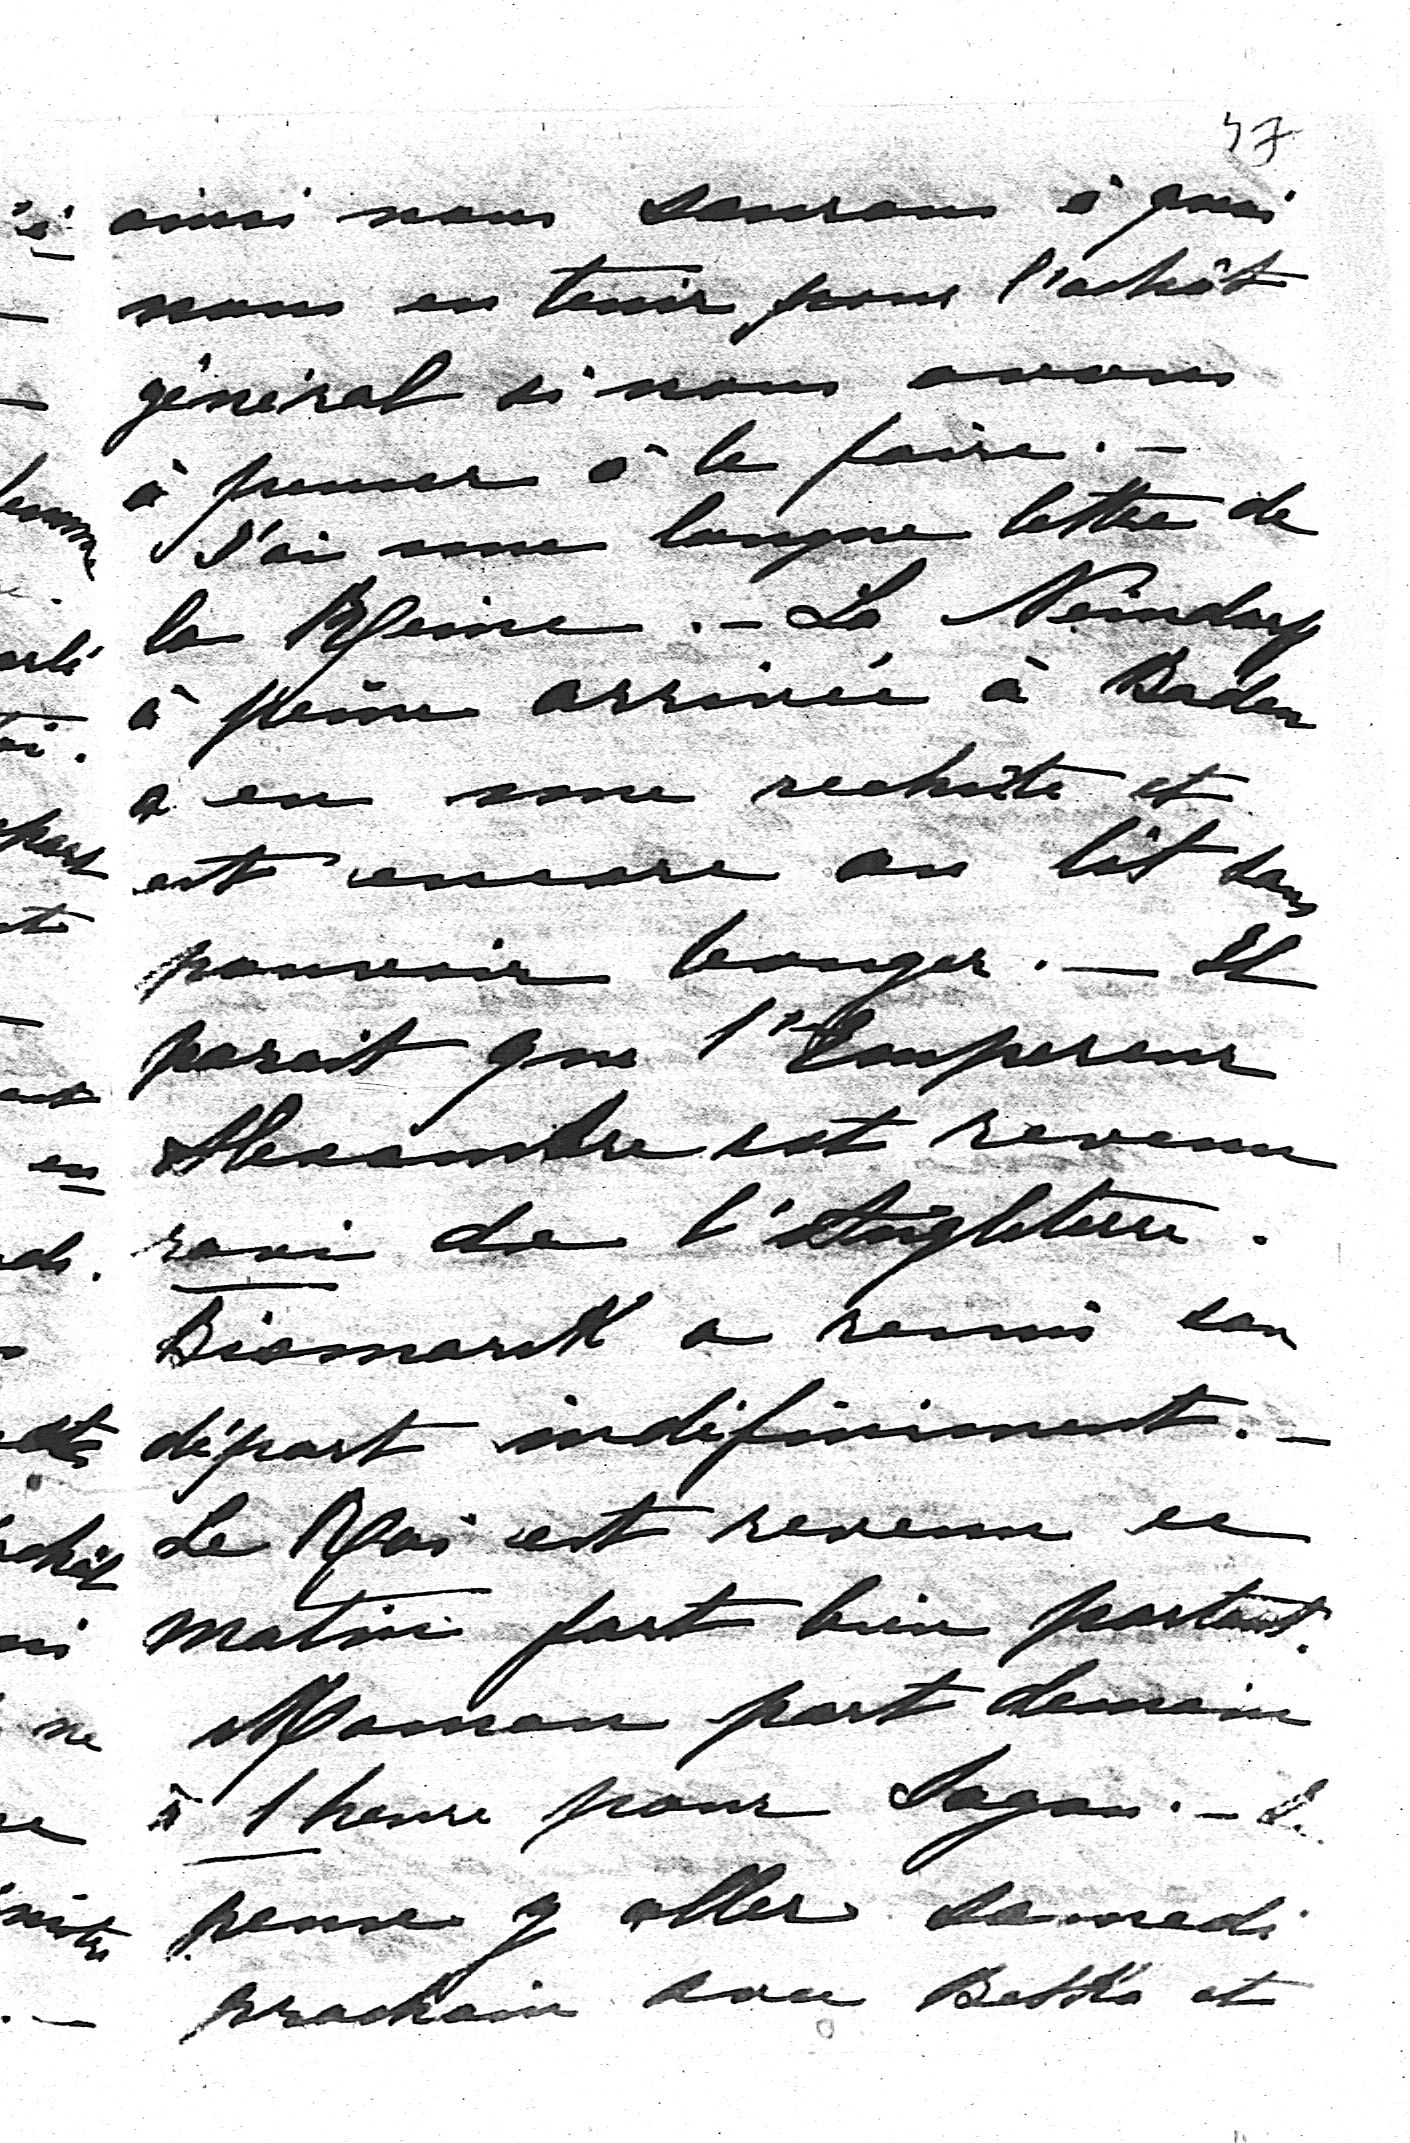 47
ainsi nous saurons à quoi
nous en tenir pour l'achât
général si nous avons
à penser à le faire. —
J'ai une longue lettre de
la Reine. — La Neindorf
à peine arrivée à Baden
a eu une rechûte et
est encore au lit sans
pouvoir bouger. — Il
parait que l'Empereur
Alexandre est revenu
ravi de l'Angleterre.
Bismarck a remis son
départ indéfiniment. —
Le Roi est revenu ce
matin fort bien portant.
Maman part demain
à 1 heure pour Sagan. —
pense y aller samedi
prochain avec et